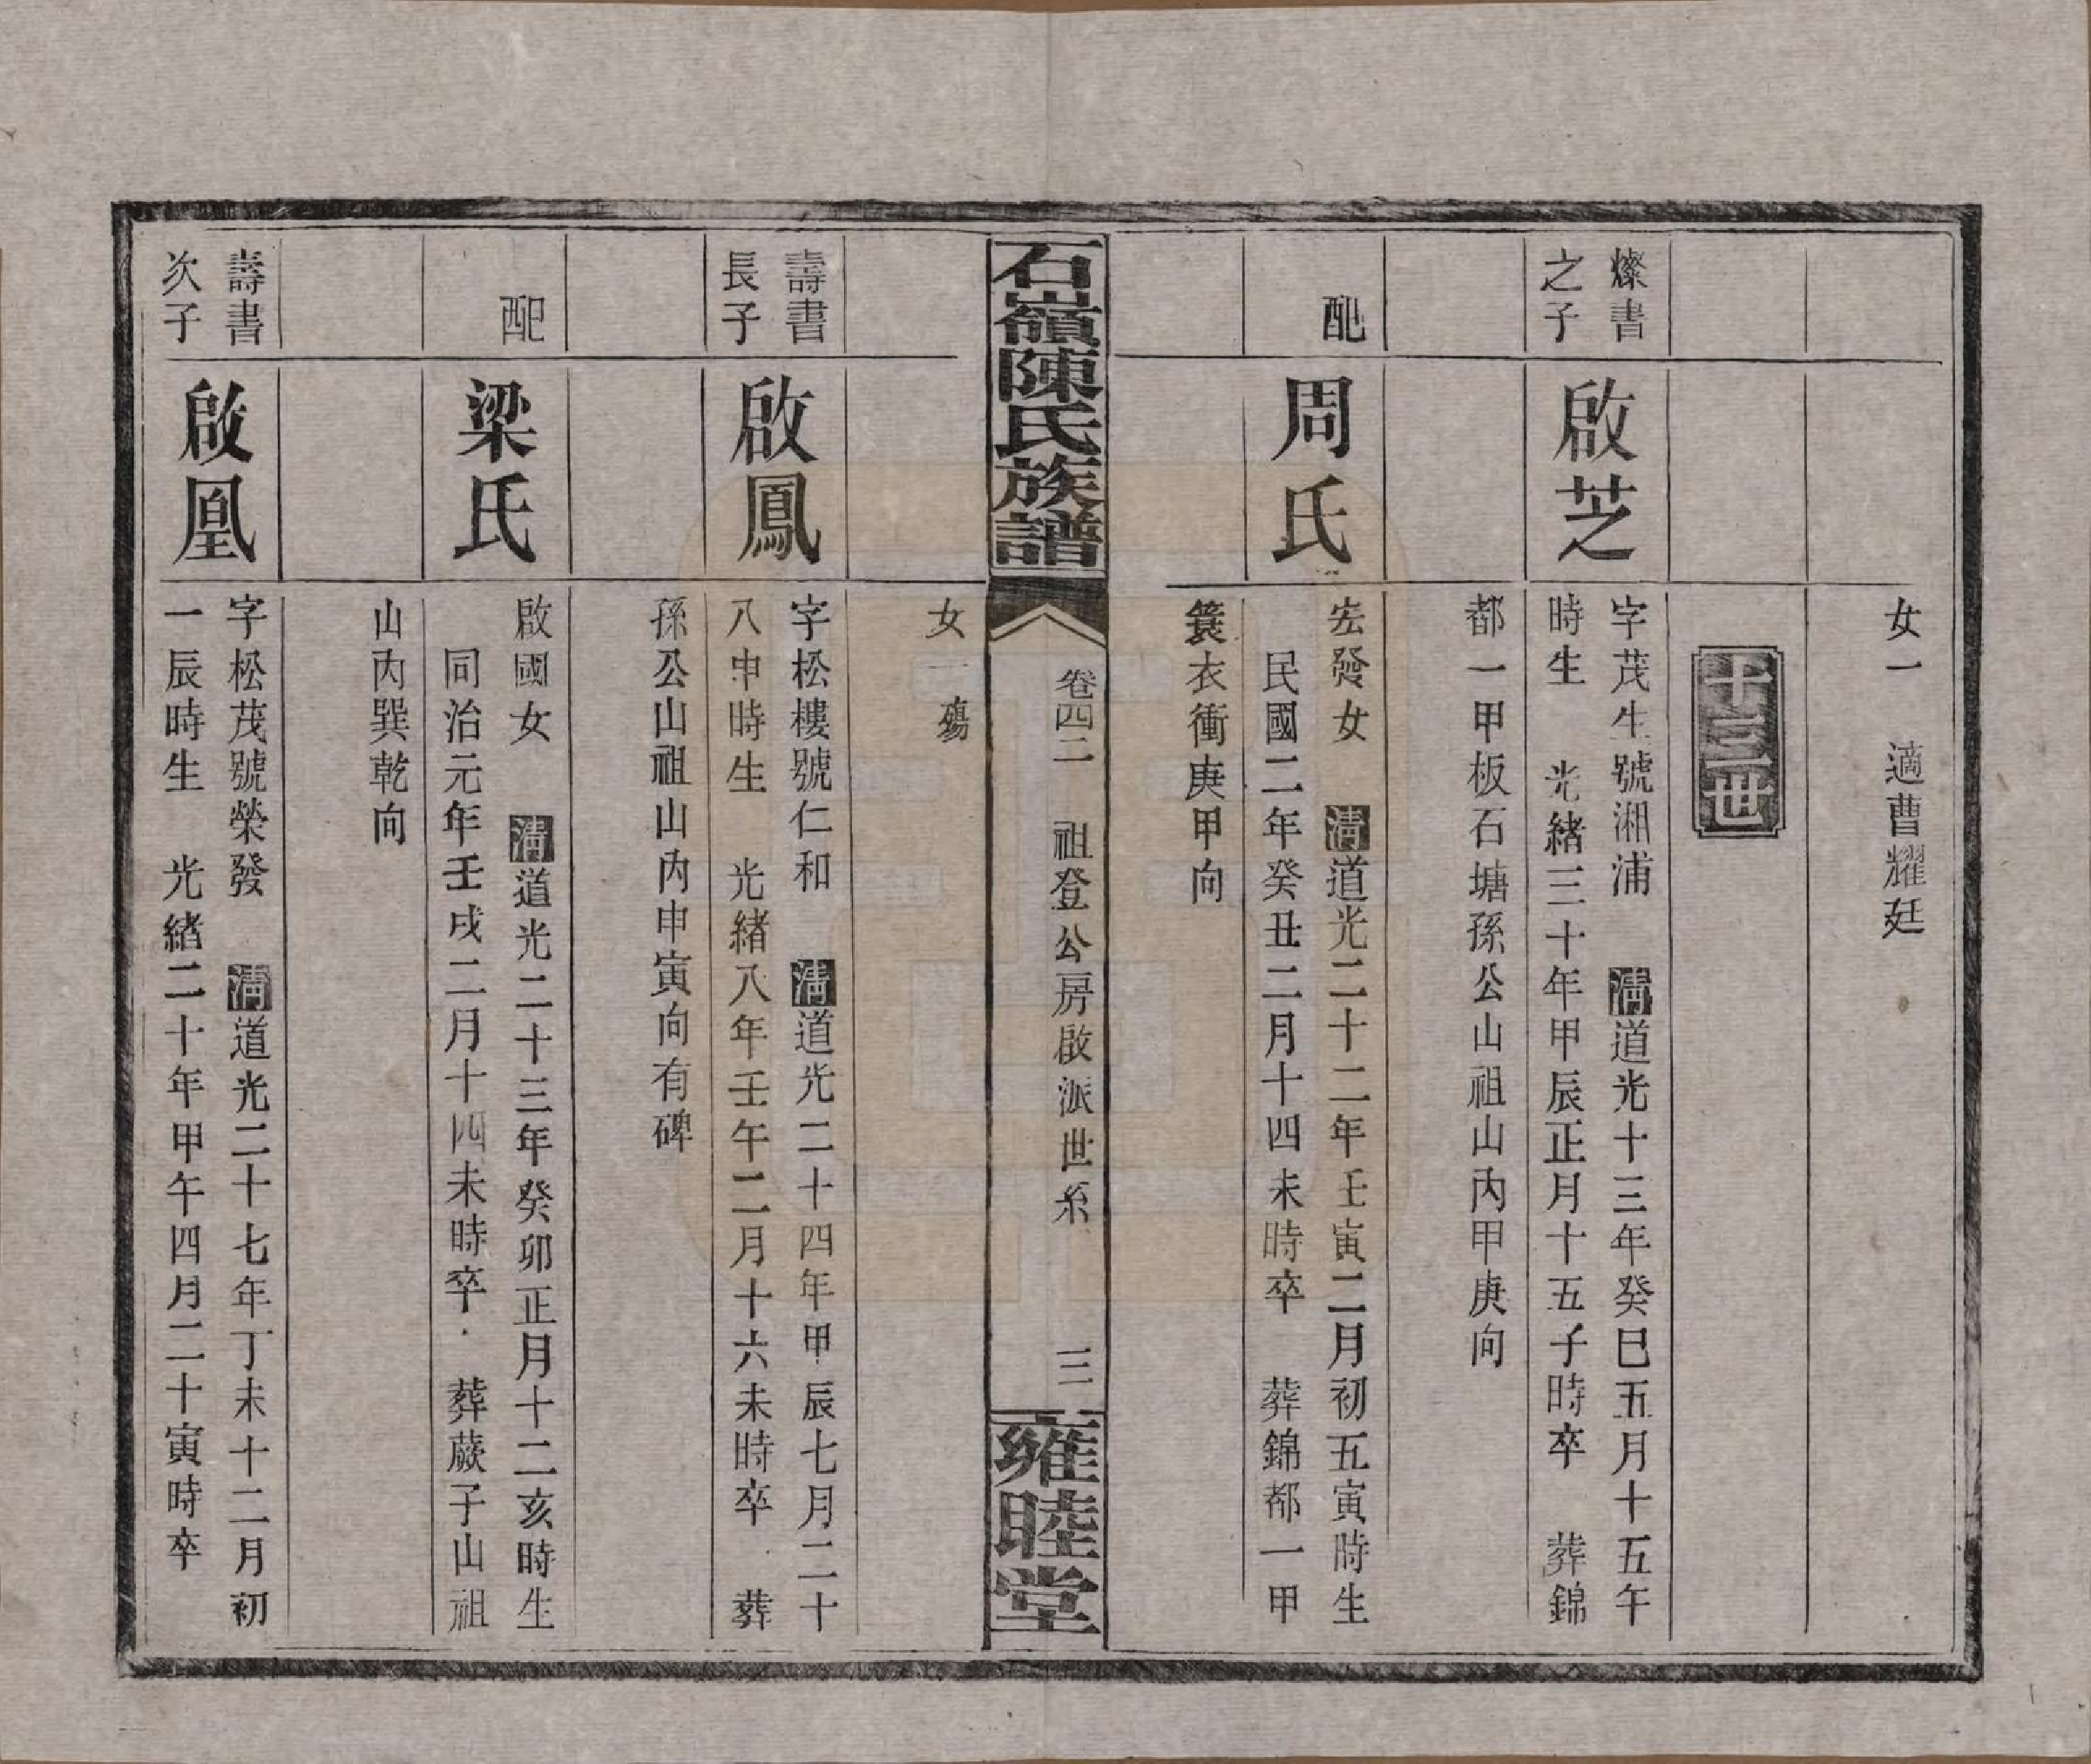 女一　適曹耀廷
十三世
燦書
之子
啟芝
字茂生號湘浦　清道光十三年癸巳五月十五午
時生　光緒三十年甲辰正月十五子時卒　葬錦
都一甲板石塘孫公山祖山內甲庚向
配
周氏
宏發女　清道光二十二年壬寅二月初五寅時生
民國二年癸丑二月十四未時卒　葬錦都一甲
簑衣衝庚甲向
石嶺陳氏族譜
卷四二　祖登公房啟派世系　三
雍睦堂
女一　殤
壽書
長子
啟鳳
字松樓號仁和　清道光二十四年甲辰七月二十
八申時生　光緒八年壬午二月十六未時卒　葬
孫公山祖山內申寅向有碑
配
梁氏
啟國女　清道光二十三年癸卯正月十二亥時生
同治元年壬戌二月十四未時卒　葬蕨子山祖
山內巽乾向
壽書
次子
啟凰
字松茂號榮發　清道光二十七年丁未十二月初
一辰時生　光緒二十年甲午四月二十寅時卒